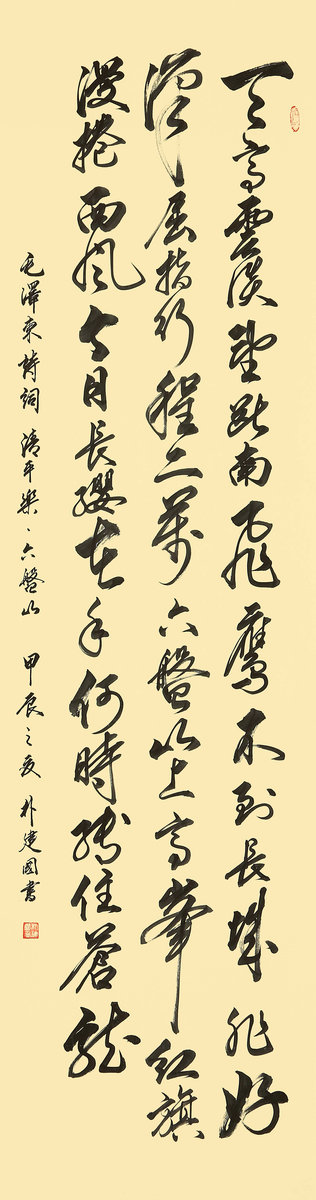 天高雲淡望斷南飛鴈不到長城非好
漢屈指行程二萬六盤山上高峯紅旗
漫捲西風今日長纓在手何時縛住蒼龍
毛澤東詩詞清平樂、六盤山 甲辰之夏 朴建國書